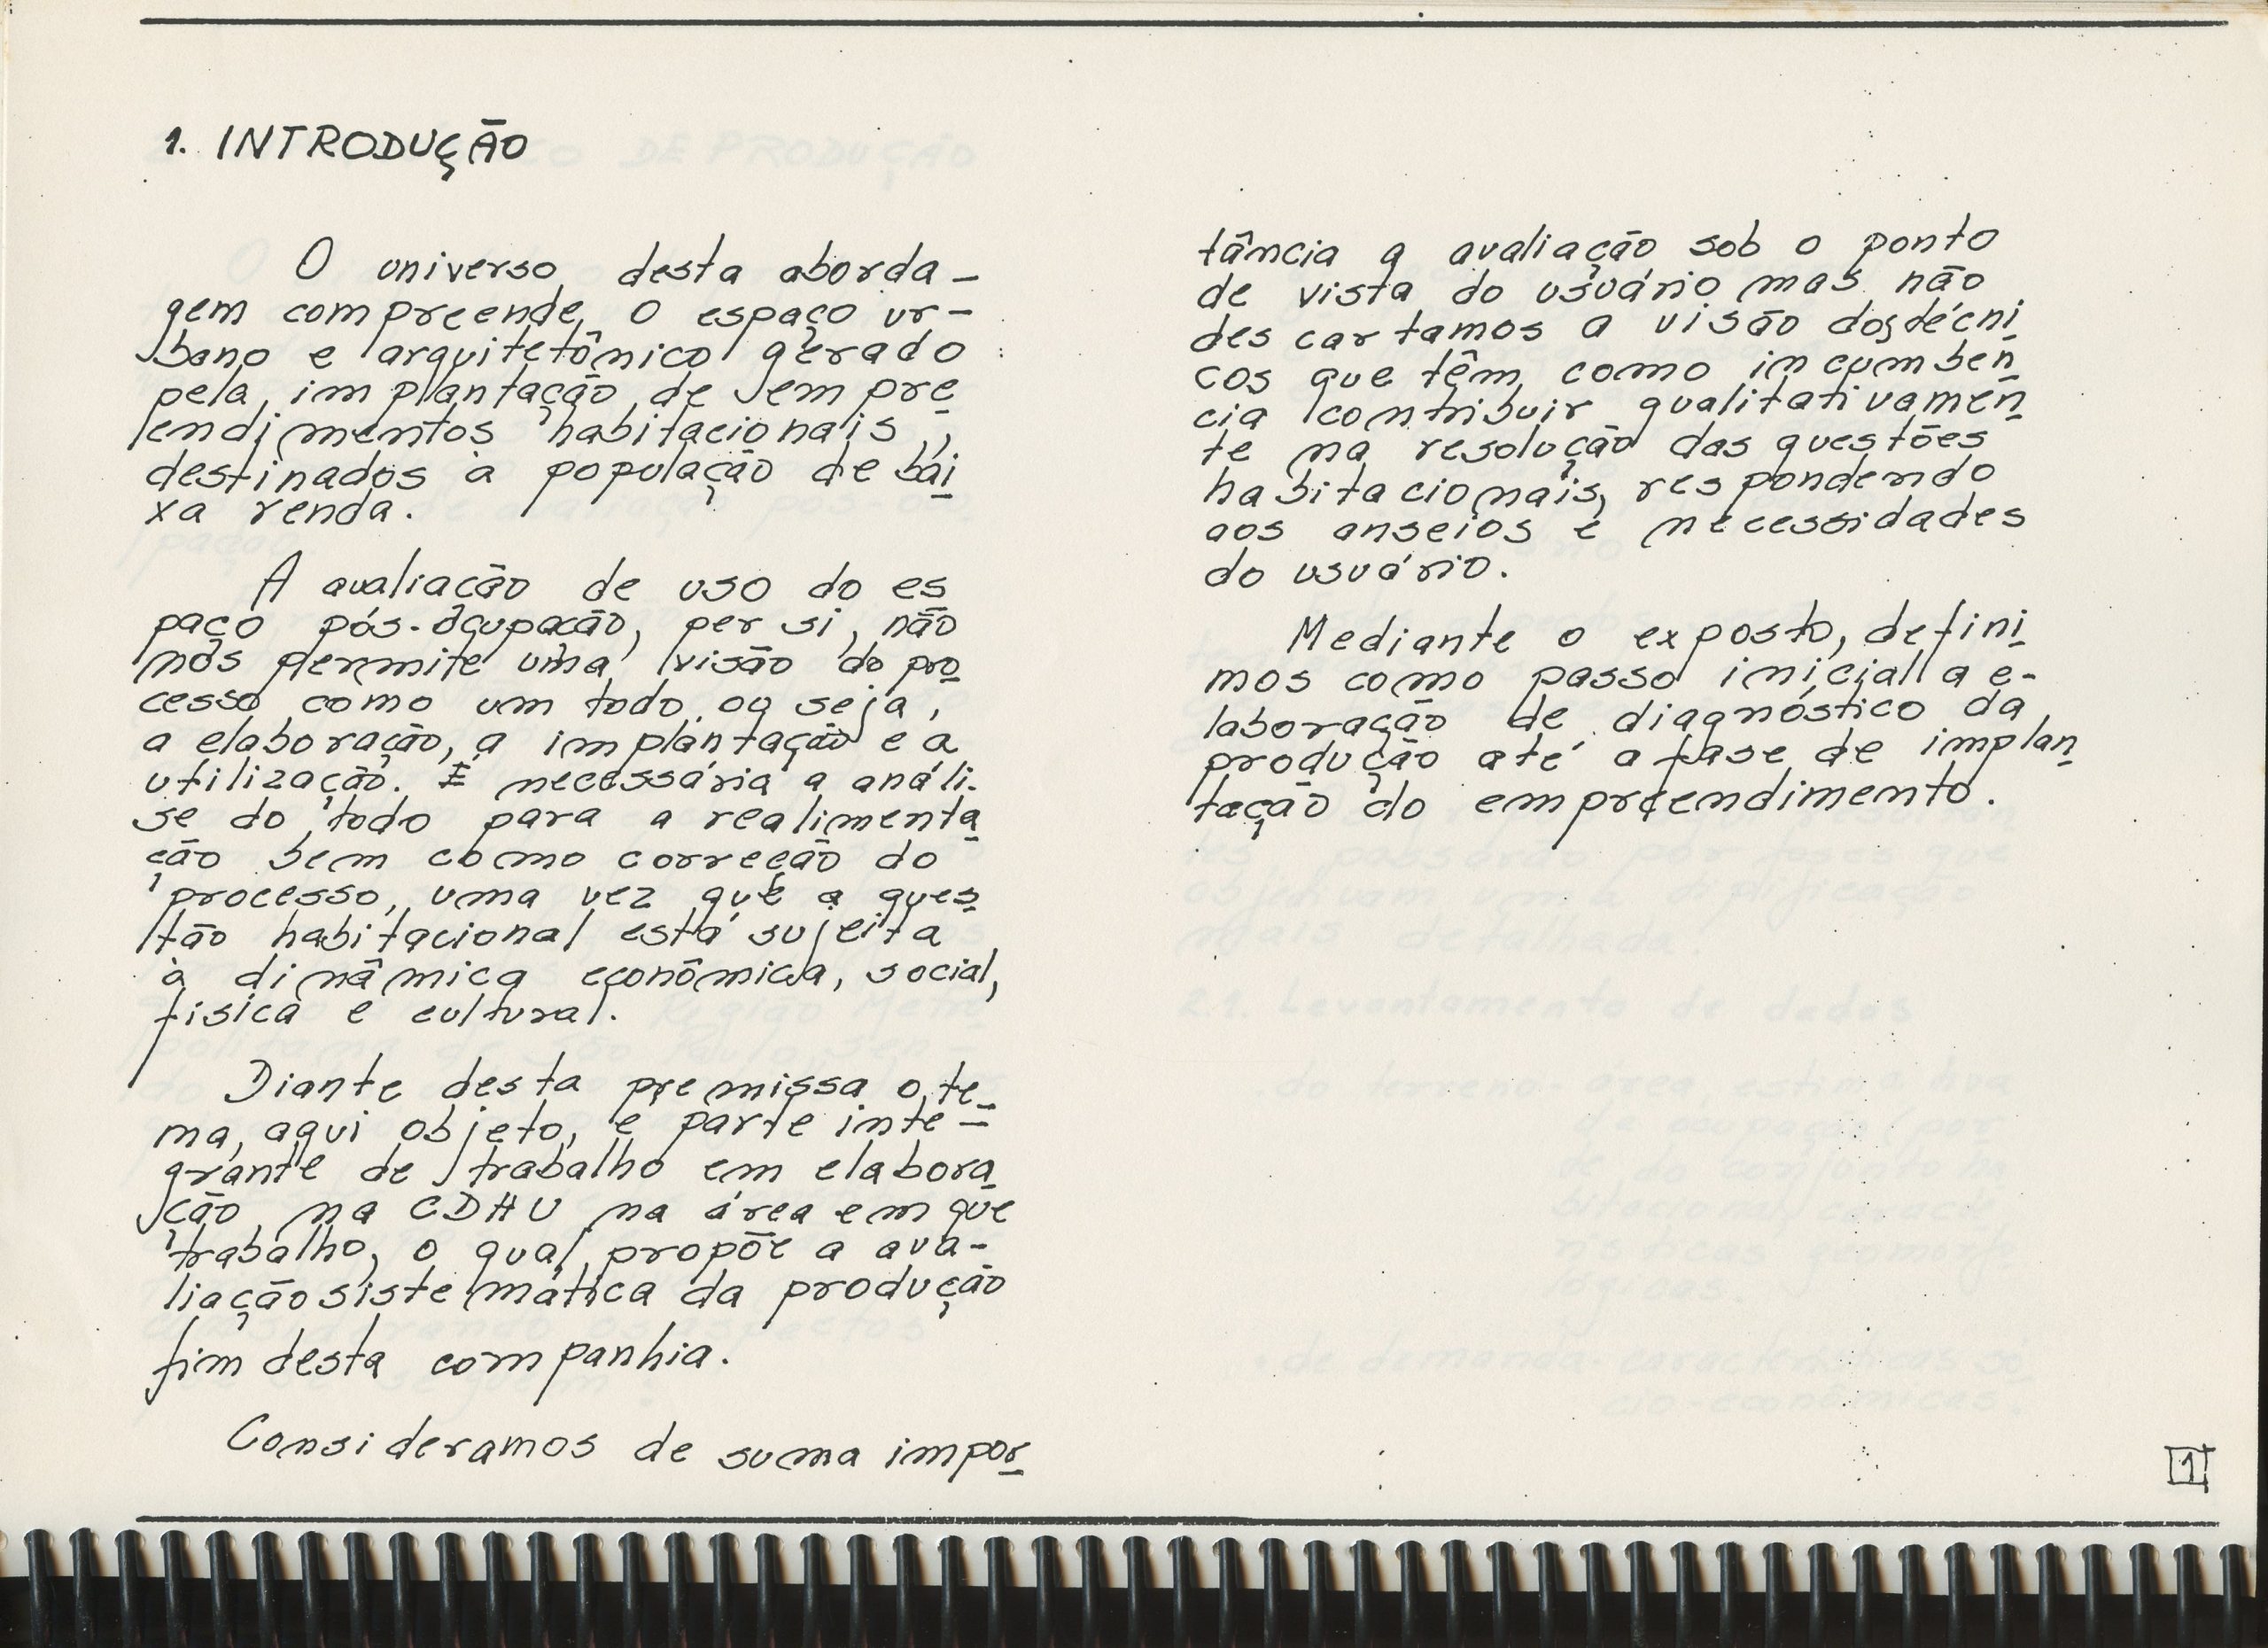 1. INTRODUÇÃO
O universo desta aborda-
gem compreende o espaço ur-
bano e arquitetônico gerado
pela implantação de empre
endimentos habitacionais,
destinados à população de bai
xa renda.
A avaliação de uso do es
paço pós-ocupação, per si, não
nos permite uma visão do pro
cesso como um todo, ou seja,
a elaboração, a implantação e a
utilização. É necessária a análi-
se do todo para a realimenta
ção bem como correção do
processo, uma vez que a ques
tão habitacional está sujeita
à dinâmica econômica, social,
física e cultural.
Diante desta premissa o te-
ma, aqui objeto, é parte inte-
grante de trabalho em elabora
ção na CDHU na área em que
trabalho, o qual propõe a ava-
liação sistemática da produção
fim desta companhia.
Consideramos de suma impor
tância a avaliação sob o ponto
de vista do usuário mas não
descartamos a visão dos técni
cos que têm como incumbên
cia contribuir qualitativamen
te na resolução das questões
habitacionais, respondendo
aos anseios e necessidades
do usuário.
Mediante o exposto, defini
mos como passo inicial a e-
laboração de diagnóstico da
produção até a fase de implan
tação do empreendimento.
1